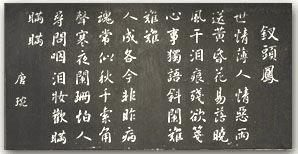 釵頭鳳
世情薄人情惡雨
送黃昏花易落曉
風干泪痕殘欲箋
心事獨語斜闌難
難難
人成各今非昨病
魂常似秋千索角
聲寒夜闌珊怕人
尋問咽泪妝歡瞞
瞞瞞
唐琬